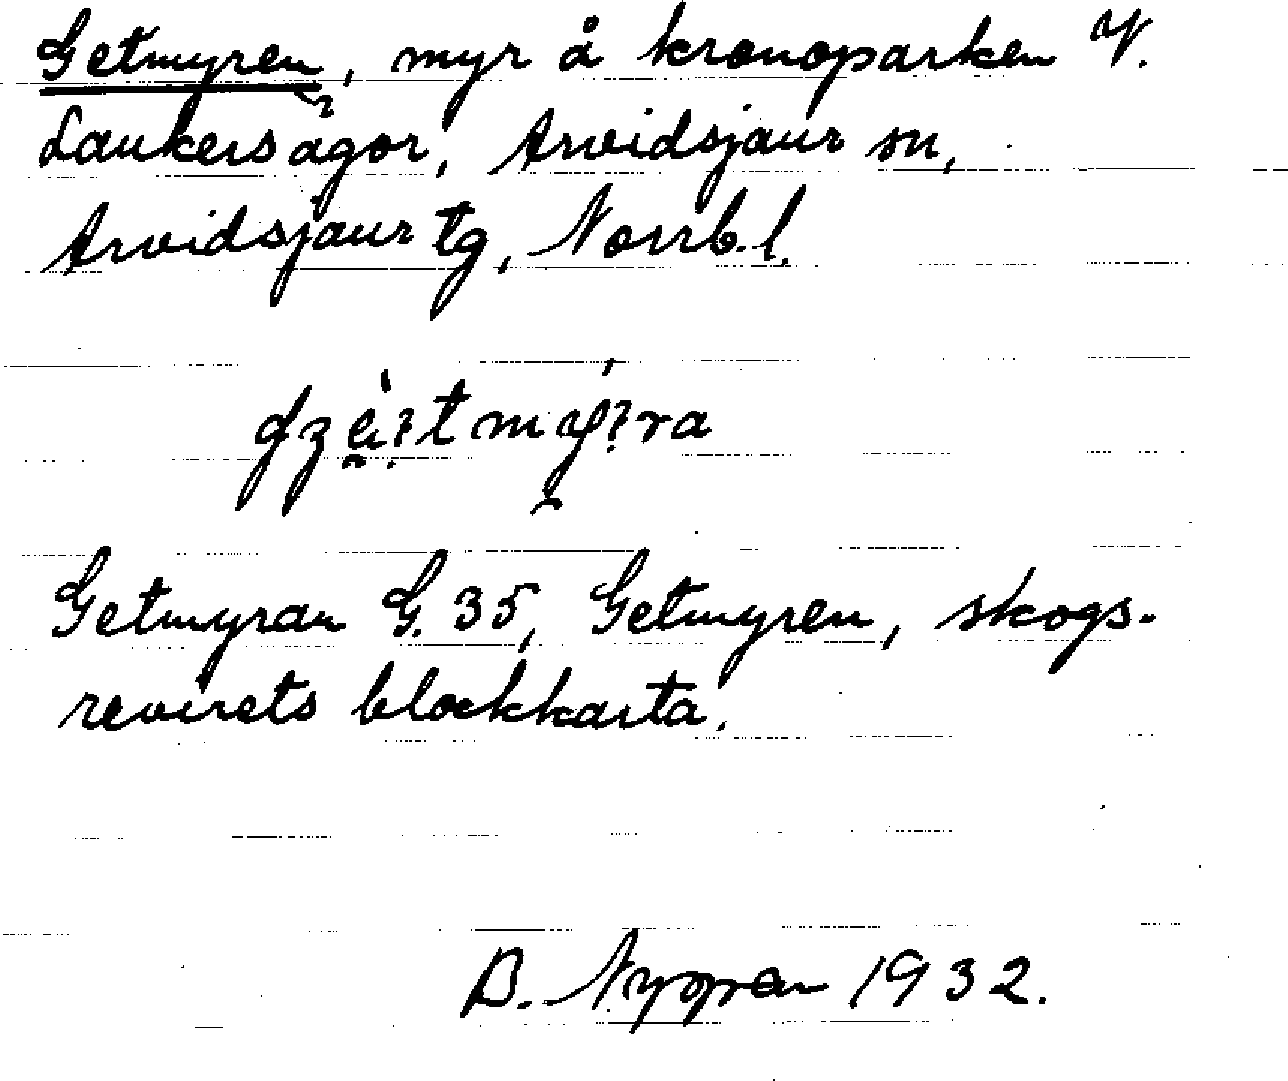 Getmyren, myr å kronoparken V.
Laukers ägor, Arvidsjaur sn,
Arvidsjaur tg, Norrb. l.
Getmyran G. 35, Getmyren, skogs-
revirets blockkarta.
B. 1932.